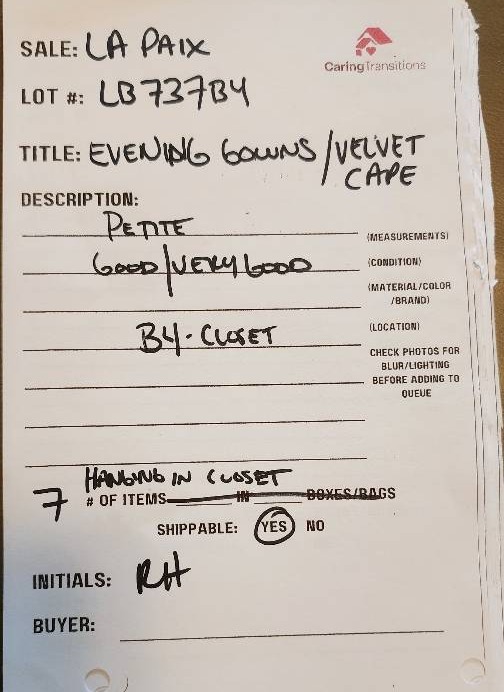 SALE: LA PAIX
CaringTransitions
LOT #: LB737B4
TITLE: EVENING GOWNS/VELVET
CAPE
DESCRIPTION:
PETITE
(MEASUREMENTS)
GOOD/VERY GOOD
(CONDITION)
(MATERIAL/COLOR
/BRAND)
B4-CLOSET
(LOCATION)
CHECK PHOTOS FOR
BLUR/LIGHTING
BEFORE ADDING TO
QUEUE
HANGING IN CLOSET
7 # OF ITEMS IN BOXES/BAGS
SHIPPABLE: YES NO
INITIALS: RH
BUYER: